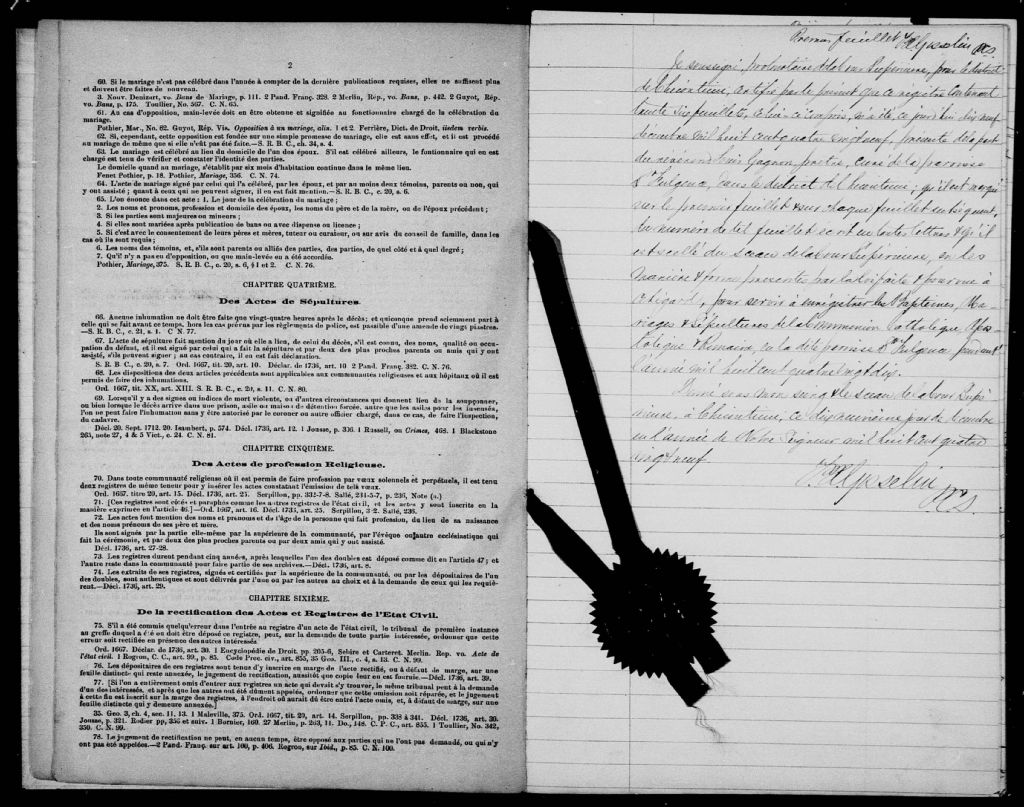 2
60. Si le mariage n'est pas célébré dans l'année à compter de la dernière publications requises, elles ne suffisent plus
et doivent être faites de nouveau.
3. Nouv. Denizart, vo. Bans de Mariage, p. 111. 2 Pand. Franç. 328. 2 Merlin, Rép., vo. Bans, p. 442. 2 Guyot, Rép.
vo. Bans, p. 175. Toullier, No. 567. C. N. 65.
61. Au cas d'opposition, main-levée doit en être obtenue et signifiée au fonctionnaire chargé de la célébration du
mariage.
Pothier, Mar., No. 82. Guyot, Rép. Vis. Opposition à un mariage, alin. 1 et 2. Ferrière, Dict. de Droit, iisdem verbis.
62. Si, cependant, cette opposition est fondée sur une simple promesse de mariage, elle est sans effet, et il est procédé
au mariage de même que si elle n'eût pas été faite.—S. R. B. C., ch. 34, s. 4.
63. Le mariage est célébré au lieu du domicile de l'un des époux. S'il est célébré ailleurs, le fontionnaire qui en est
chargé est tenu de vérifier et constater l'identité des parties.
Le domicile quand au mariage, s'établit par six mois d'habitation continue dans le même lieu.
Fenet Pothier, p. 18. Pothier, Mariage, 356. C. N. 74.
64. L'acte de mariage signé par celui qui l'a célébré, par les époux, et par au moins deux témoins, parents ou non, qui
y ont assisté ; quant à ceux qui ne peuvent signer, il en est fait mention.—S. R. B. C., c. 20, s. 6.
65. L'on énonce dans cet acte : 1. Le jour de la célébration du mariage ;
2. Les noms et prénoms, profession et domicile des époux, les noms du père et de la mère, ou de l'époux précédent ;
3. Si les parties sont majeures ou mineures ;
4. Si elles sont mariées après publication de bans ou avec dispense ou licence ;
5. Si c'est avec le consentement de leurs pères et mères, tuteur ou curateur, ou sur avis du conseil de famille, dans les
cas où ils sont requis ;
6. Les noms des témoins, et, s'ils sont parents ou alliés des parties, des parties, de quel côté et à quel degré ;
7. Qu'il n'y a pas eu d'opposition, ou que main-levée en a été accordée.
Pothier, Mariage, 375. S. R. B. C., c. 20, s. 6, § 1 et 2. C. N. 76.
CHAPITRE QUATRIÈME.
Des Actes de Sépultures.
66. Aucune inhumation ne doit être faite que vingt-quatre heures après le décès ; et quiconque prend sciemment part à
celle qui se fait avant ce temps, hors les cas prévus par les règlements de police, est passible d'une amende de vingt piastres.
—S. R. B. C., c. 21, s. 1. C N. 77.
67. L'acte de sépulture fait mention du jour où elle a lieu, de celui du décès, s'il est connu, des noms, qualité ou occu-
pation du défunt, et il est signé par celui qui a fait la sépulture et par deux des plus proches parents ou amis qui y ont
assisté, s'ils peuvent signer ; au cas contraire, il en est fait déclaration.
S. R. B. C., c. 20, s. 7. Ord. 1667, tit. 20, art. 10. Déclar. de 1736, art. 10 2 Pand. Franç. 382. C. N. 76.
68. Les dispositions des deux articles précédents sont applicables aux communautés religieuses et aux hôpitaux où il est
permis de faire des inhumations.
Ord. 1667, tit. XX, art. XIII. S. R. B. C., c. 20, s. 11. C. N. 80.
69. Lorsqu'il y a des signes ou indices de mort violente, ou d'autres circonstances qui donnent lieu de la soupçonner,
ou bien lorsque le décès arrive dans une prison, asile ou maison de détention forcée, autre que les asiles pour les insensés,
l'on ne peut faire l'inhumation sans y être autorisé par le coroner ou autre officier chargé, dans ces cas, de faire l'inspection,
du cadavre.
Décl. 20. Sept. 1712. 20. Isambert, p. 574. Décl. 1736, art. 12. 1 Jousse, p. 336. 1 Russell, on Crimes, 468. 1 Blackstone
265, note 27, 4 & 5 Vict., c 24. C. N. 81.
CHAPITRE CINQUIÈME.
Des Actes de profession Religieuse.
70. Dans toute communauté religieuse où il est permis de faire profession par vœux solennels et perpétuels, il est tenu
deux registres de même teneur pour y insérer les actes constatant l'émission de tels vœux.
Ord. 1667. titre 20, art. 15. Décl. 1736, art. 25. Serpillon, pp. 332-7-8. Sallé, 231-5-7, p. 236, Note (a.)
71. [Ces registres sont cotés et paraphés comme les autres registres de l'état civil, et les actes y sont inscrits en la
manière exprimée en l'article 46.]—Ord. 1667, art. 16. Décl. 1733, art. 25. Serpillon, 332. Sallé, 236.
72. Les actes font mention des noms et prenoms et de l'âge de la personne qui fait profession, du lieu de sa naissance
et des noms prénoms de ses père et mère.
Ils sont signés par la partie elle-même par la supérieure de la communauté, par l'évêque ou autre ecclésiastique qui
fait la cérémonie, et par deux des plus proches parents ou par deux amis qui y ont assisté.
Décl. 1736, art. 27-28.
73. Les registres durent pendant cinq années, après lesquelles l'un des doubles est déposé comme dit en l'article 47 ; et
l'autre reste dans la communauté pour faire partie de ses archives.—Décl. 1736, art. 8.
74. Les extraits de ses registres, signés et certifiés par la supérieure de la communauté, ou par les dépositaires de l'un
des doubles, sont authentiques et sont délivrés par l'une ou par les autres au choix et à la demande de ceux qui les requiè-
rent.—Décl. 1736, art. 29.
CHAPITRE SIXIÈME.
De la rectification des Actes et Registres de l'Etat Civil.
75. S'il a été commis quelqu'erreur dans l'entrée au registre d'un acte de l'état civil, le tribunal de première instance
au greffe duquel a été ou doit être déposé ce registre, peut, sur la demande de toute partie intéressée, ordonner que cette
erreur soit rectifiée en présence des autres intéressés
Ord. 1667. Déclar. de 1736, art. 30. 1 Encyclopédie de Droit. pp. 205-6, Sebire et Carteret. Merlin. Rep. vo. Acte de
l'état civil. 1 Rogron, C. C., art. 99, p. 85. Code Proc. civ., art. 855, 35 Geo. III., c. 4, s. 13. C. N. 99.
76. Les dépositaires de ces registres sont tenus d'y inscrire en marge de l'acte rectifié, ou à défaut de marge, sur une
feuille distincte qui reste annexée, le jugement de rectification, aussitôt que copie leur en est fournie.—Décl. 1736, art. 39.
77. [Si l'on a entièrement omis d'entrer aux registres un acte qui devait s'y trouver, le même tribunal peut à la demande
d'un des intéressés, et après que les autres ont été dûment appelés, ordonner que cette omission soit réparée, et le jugement
à cette fin est inscrit sur la marge des registres, à l'endroit où aurait dû être entré l'acte omis, et, à défaut de marge, sur une
feuille distincte qui y demeure annexée.]
35. Geo. 3, ch. 4, sec. 11, 13. 1 Maleville, 375. Ord. 1667, tit. 20, art. 14. Serpillon, pp. 338 à 341. Décl. 1736, art. 30.
Jousse, p. 321. Rodier pp, 356 et suiv. 1 Bornier, 160. 27 Merlin, p. 263, 11. Do., 148. C. P. C., art. 855. 1 Toullier, No. 342,
350. C. N. 99.
78. Le jugement de rectification ne peut, en aucun temps, être opposé aux parties qui ne l'ont pas demandé, ou qui n'y
ont pas été appelées.—2 Pand. Franç. sur art. 100, p. 406. Rogron, sur Ibid., p. 85. C. N. 100.
Premier feuillet Gosselin PCS
Je soussigné protonotaire de la Cour Supérieure, pour le district
de Chicoutimi, certifie par le présent que ce registre contenant
feuillets, celui-ci compris, m'a été, ce jourd'hui dix neuf
décembre mil huit cent quatre vingt neuf, présenté de la part
du révérend Gagnon prêtre, curé de la paroisse
St Fulgence, dans le district de Chicoutimi ; qu'il est marqué
sur le premier feuillet & sur chaque feuillet subséquent,
du numéro de tel feuillet écrit en toutes lettres & qu'il
est scellé du Sceau de la Cour Supérieure, en la
manière & forme prescrites par la loi faite & pourvue à
cet égard, pour servir à enregistrer les Baptêmes, Ma-
riages & Sépultures de la Communion Catholique Apos-
tolique & Romaine, en la dite paroisse St Fulgence, pendant
l'année mil huit cent quatre vingt dix.
Donné sous mon seing & le Sceau de la Cour Supé-
rieure, à Chicoutimi, ce dix neuvième jour de Décembre
en l'année de Notre Seigneur mil huit cent quatre
vingt neuf.
Gosselin
PCS